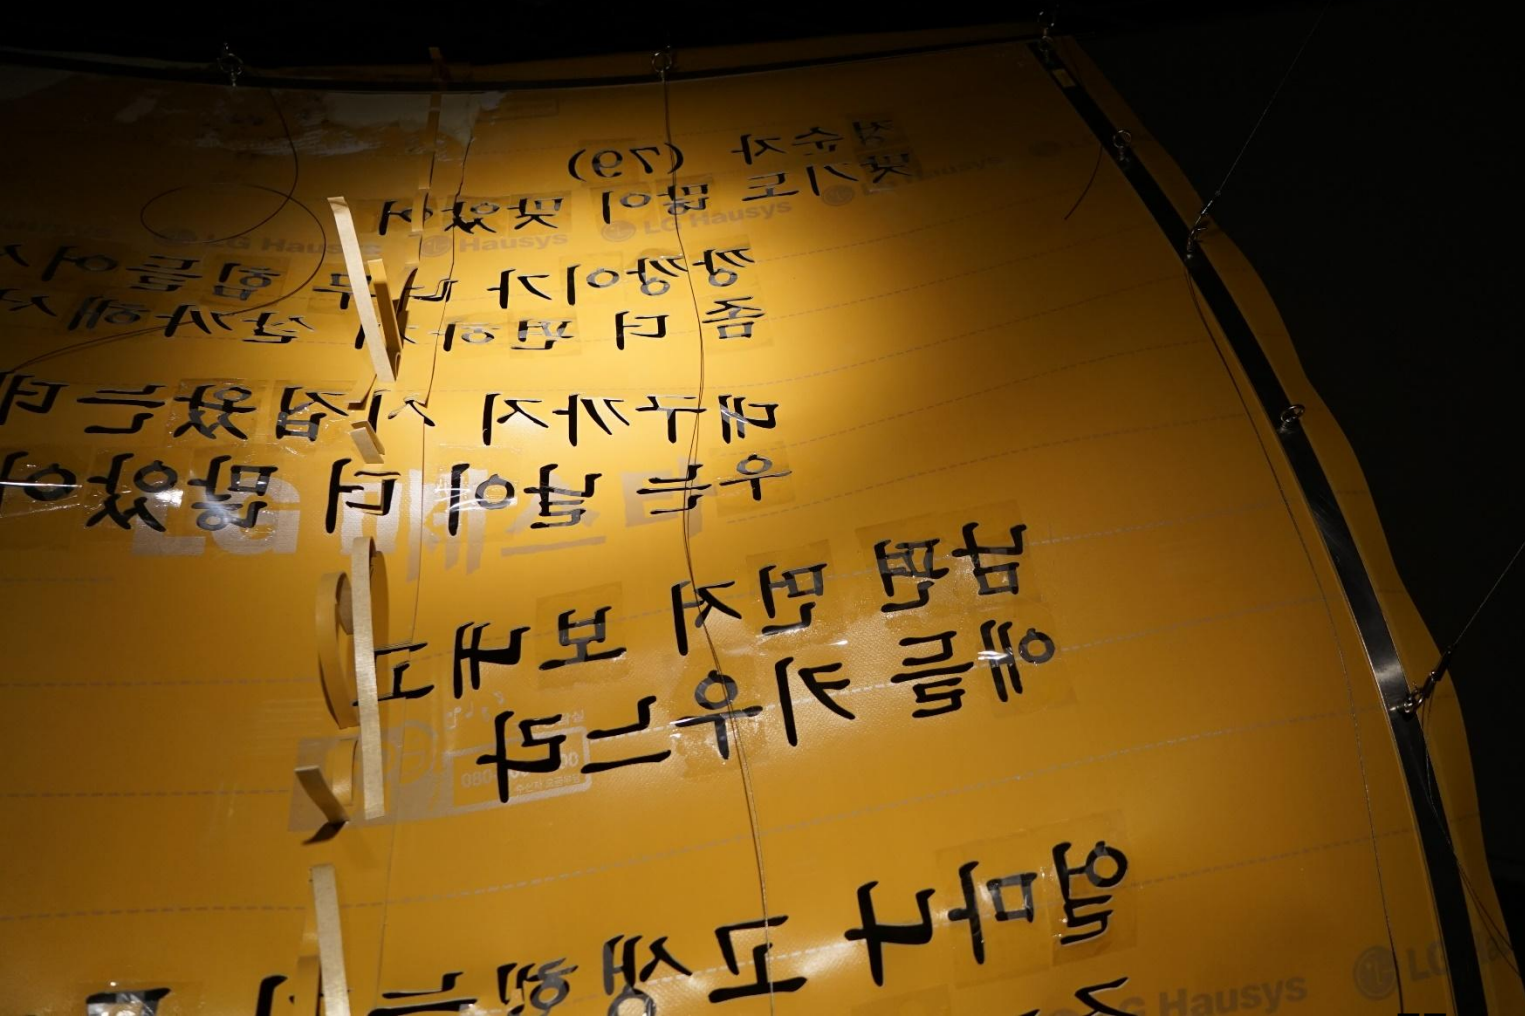 순자 (79)
맞기도 많이 맞았어
깡깡이가 너무 힘들어
좀 더 편하게 살까해서
대구까지 시집 왔는데
우는 날이 더 많았어
남편 먼저 보내고
애들 키우느라
얼마나 고생했는
LG Hausys
LG Hausys
LG Hausys
LG Hausys